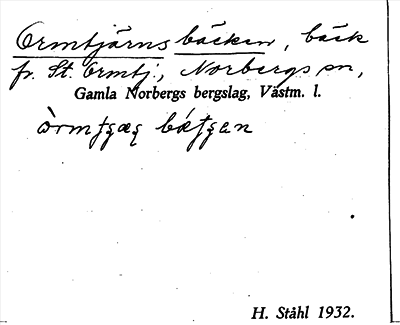 Ormtjärnsbäcken, bäck
fr. St. Ormtj., Norbergs sn,
Gamla Norbergs bergslag, Västm. l.
H. Ståhl 1932.